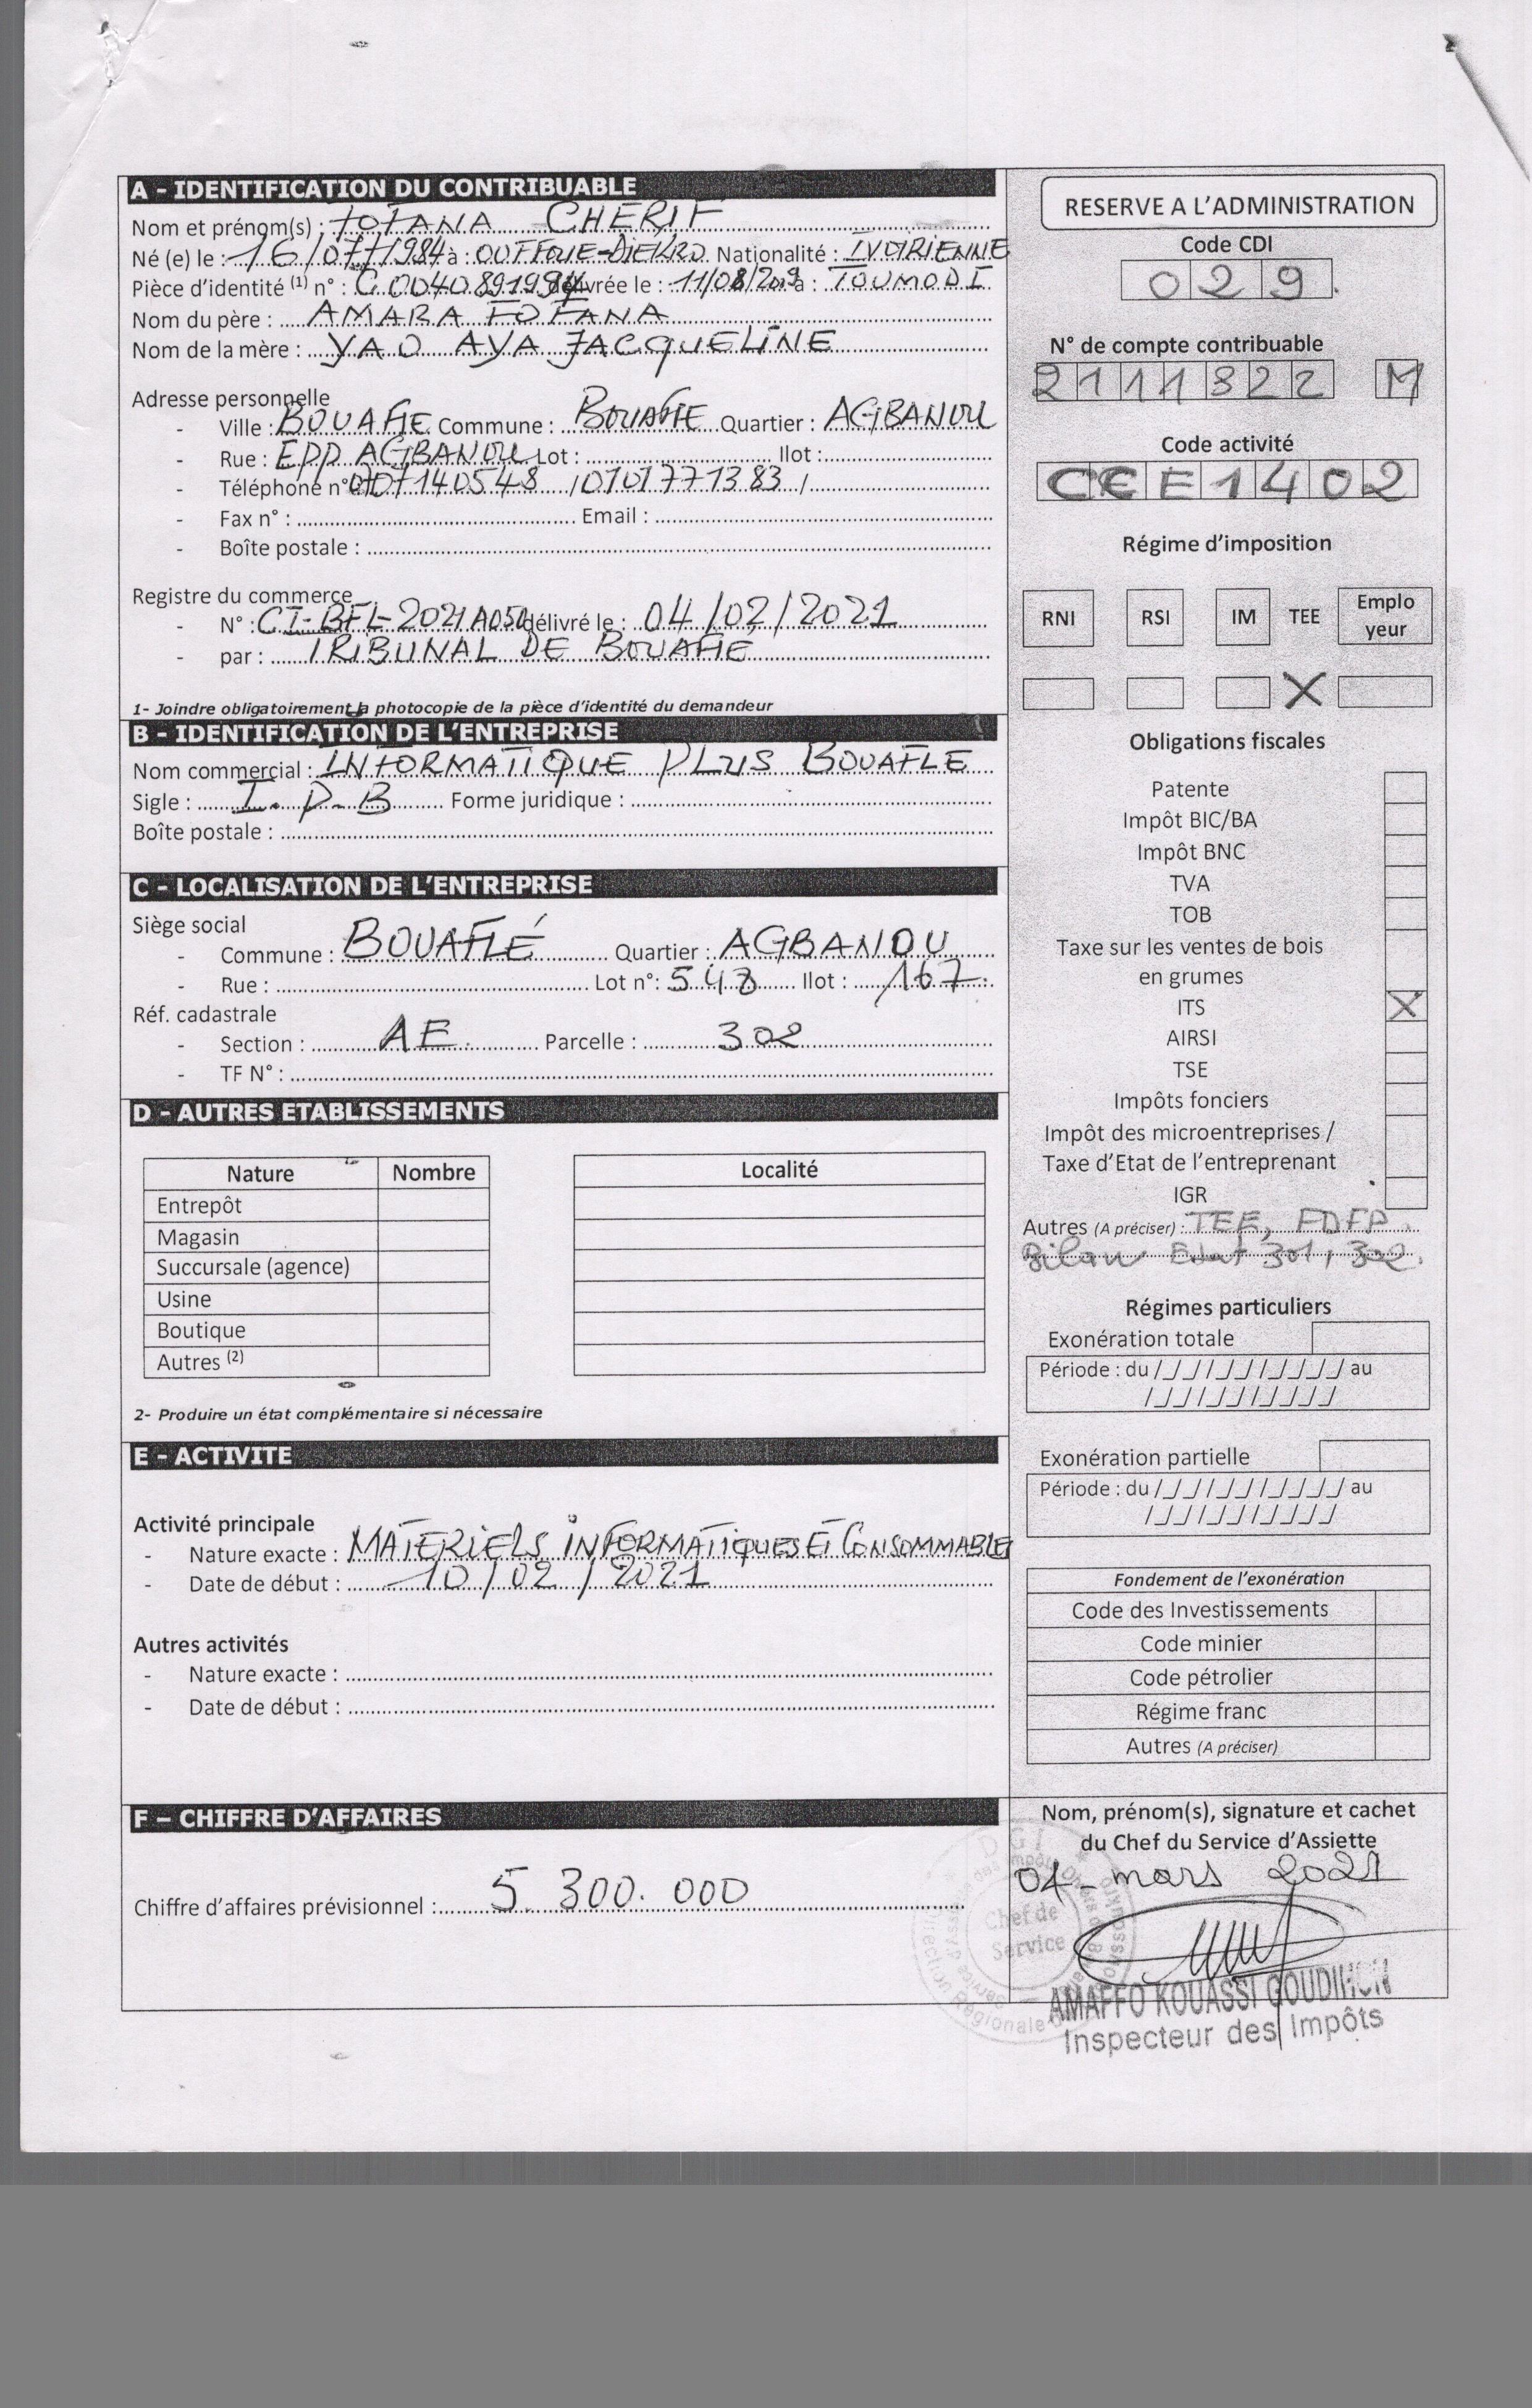 A - IDENTIFICATION DU CONTRIBUABLE
Nom et prénom(s) : FOFANA CHERIF
Né (e) le : 16/07/1984 à : OUFFOUE-DIEKRO Nationalité : IVOIRIENNE
Pièce d'identité (1) n° : C 0040891994 délivrée le : 11/08/2009 à : TOUMODI
Nom du père : AMARA FOFANA
Nom de la mère : YAO AYA JACQUELINE
Adresse personnelle
- Ville : BOUAFLE Commune : BOUAFLE Quartier : AGBANOU
- Rue : EPP AGBANOU Lot : Ilot :
- Téléphone n° 0707140548 / 0101771383 /
- Fax n° : Email :
- Boîte postale :
Registre du commerce
- N° : CI-BFL-2021A050 délivré le : 04/02/2021
- par : TRIBUNAL DE BOUAFLE
1- Joindre obligatoirement la photocopie de la pièce d'identité du demandeur
B - IDENTIFICATION DE L'ENTREPRISE
Nom commercial : INFORMATIQUE PLUS BOUAFLE
Sigle : I.P-B Forme juridique :
Boîte postale :
C - LOCALISATION DE L'ENTREPRISE
Siège social
- Commune : BOUAFLÉ Quartier : AGBANOU
- Rue : Lot n°: 548 Ilot : 167
Réf. cadastrale
- Section : AE Parcelle : 302
- TF N° :
D - AUTRES ETABLISSEMENTS
Nature Nombre Localité
Entrepôt
Magasin
Succursale (agence)
Usine
Boutique
Autres (2)
2- Produire un état complémentaire si nécessaire
E - ACTIVITE
Activité principale
- Nature exacte : MATERIELS INFORMATIQUES ET CONSOMMABLES
- Date de début : 10/02/2021
Autres activités
- Nature exacte :
- Date de début :
F – CHIFFRE D'AFFAIRES
Chiffre d'affaires prévisionnel : 5 300. 000
RESERVE A L'ADMINISTRATION
Code CDI
029
N° de compte contribuable
2111322 M
Code activité
CCE1402
Régime d'imposition
RNI RSI IM TEE Emplo
yeur
X
Obligations fiscales
Patente
Impôt BIC/BA
Impôt BNC
TVA
TOB
Taxe sur les ventes de bois
en grumes
ITS X
AIRSI
TSE
Impôts fonciers
Impôt des microentreprises /
Taxe d'Etat de l'entreprenant
IGR
Autres (A préciser) : TEE, FDFP.
Bilan Etat 301, 302.
Régimes particuliers
Exonération totale
Période : du /_/_/ /_/_/ /_/_/_/_/ au
/_/_/ /_/_/ /_/_/_/_/
Exonération partielle
Période : du /_/_/ /_/_/ /_/_/_/_/ au
/_/_/ /_/_/ /_/_/_/_/
Fondement de l'exonération
Code des Investissements
Code minier
Code pétrolier
Régime franc
Autres (A préciser)
Nom, prénom(s), signature et cachet
du Chef du Service d'Assiette
04 - mars 2021
Chef de
Service
AMAFFO KOUASSI GOUDIHON
Inspecteur des Impôts